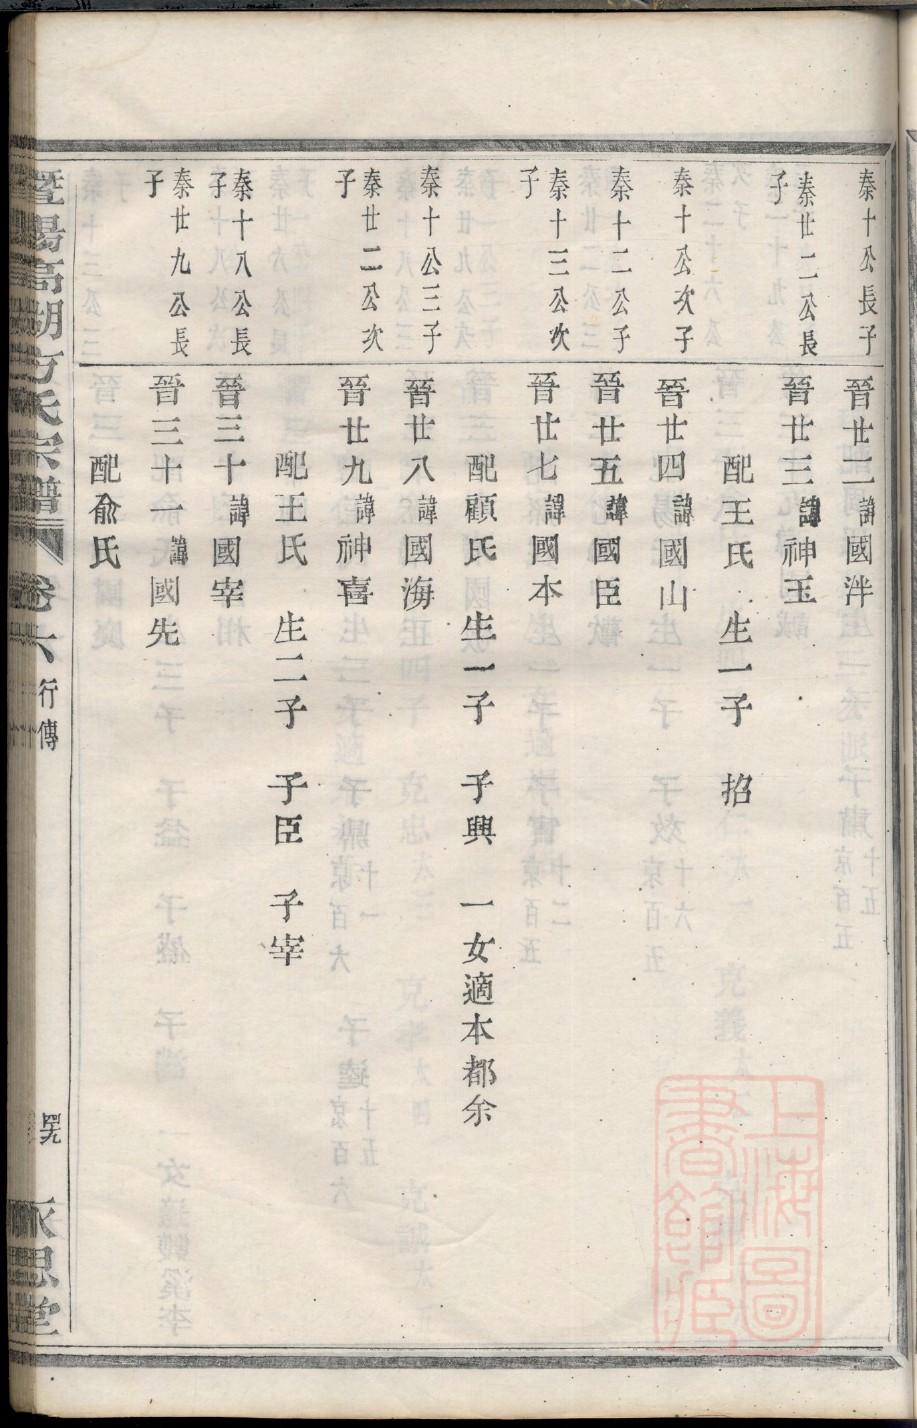 秦十公長子
晉廿二諱國泮
秦廿二公長
子
晉廿三諱神玉
配王氏 生一子 招
秦十公次子
晉廿四諱國山
秦十二公子
晉廿五諱國臣
秦十三公次
子
晉廿七諱國本
配顧氏 生一子 子興 一女適本都余
秦十公三子
晉廿八諱國海
秦廿二公次
子
晉廿九諱神喜
配王氏 生二子 子臣 子宰
秦十八公長
子
晉三十諱國宰
秦廿九公長
子
晉三十一諱國先
配俞氏
暨陽高湖方氏宗譜 卷六 行傳 永思堂
上海圖
書館藏